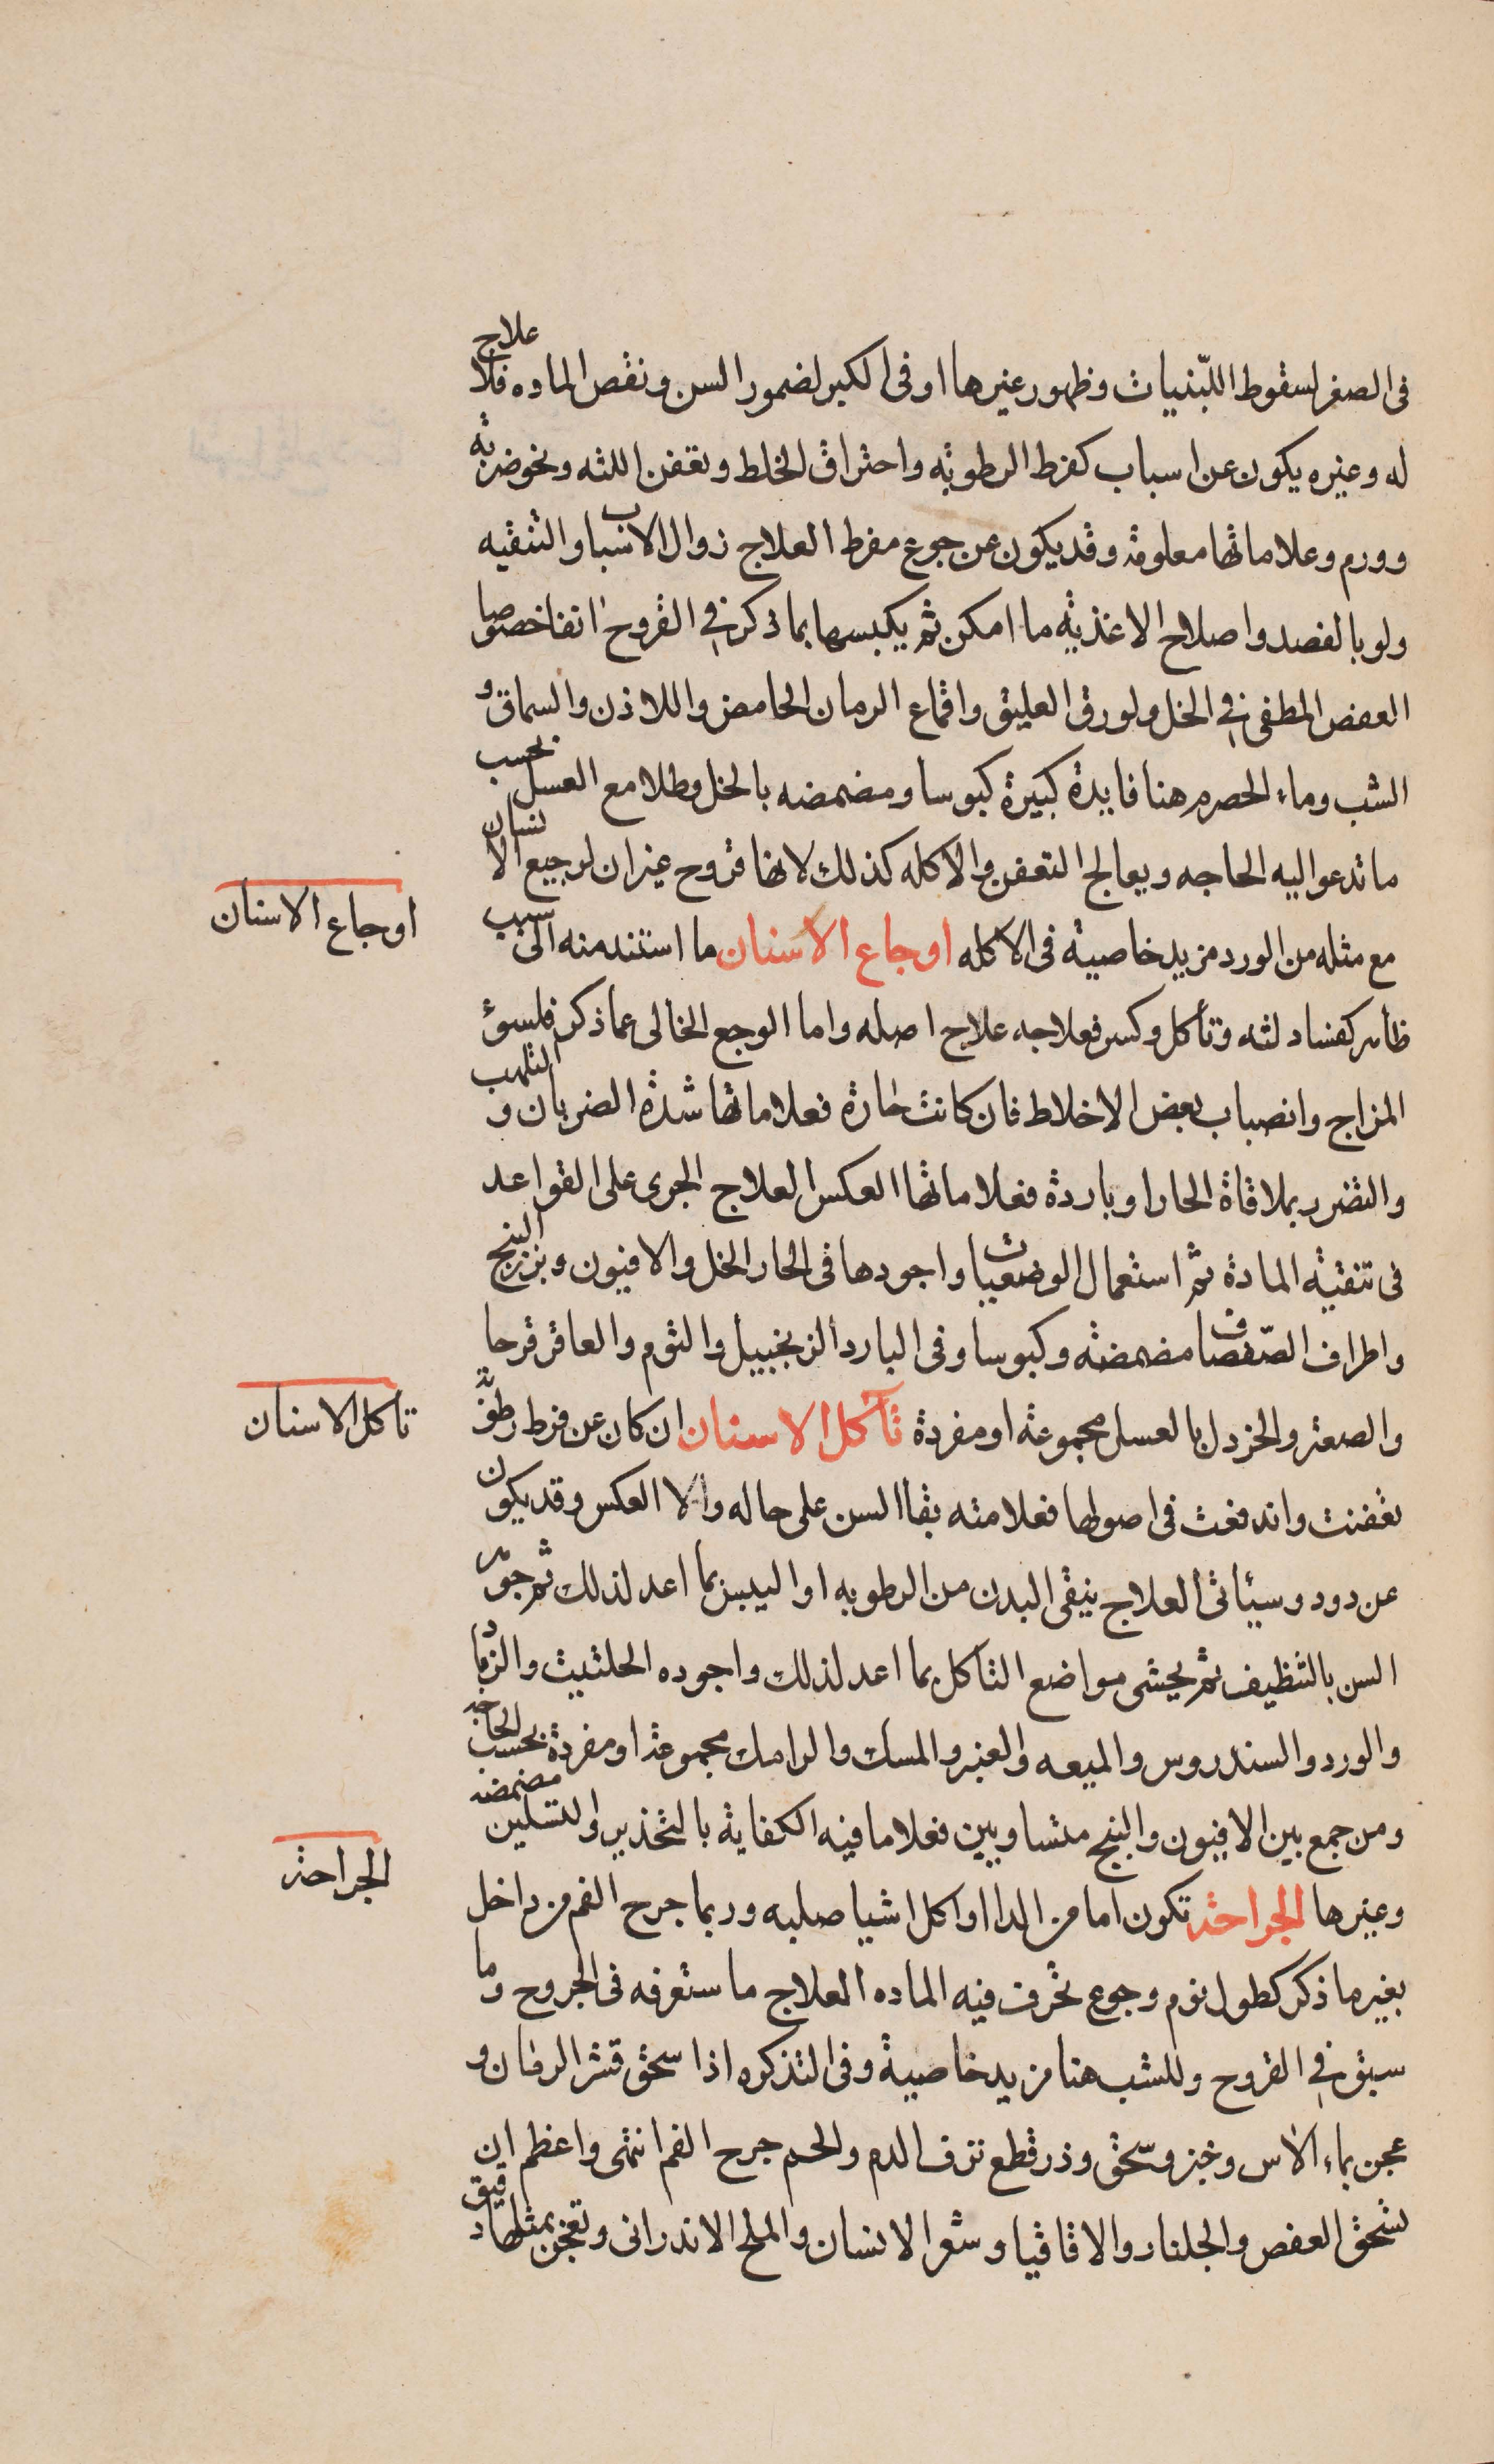 فى الصغر لسقوط اللبنيات وظهور غيرها او فى الكبر لضمور السن ونقص الماده فلا علاج
له وغيره يكون عن اسباب كفرط الرطوبة واحتراق الخلط وتعفن اللثه ونحو ضربة
وورم وعلاماتها معلومة وقد يكون عن جوع مفرط العلاج زوال الاسباب والتنقيه
ولو بالفصد واصلاح الاغذية ما امكن ثم يكبسها بما ذكر في القروح انفا خصوصا
العفص المطفى في الخل ولورق العليق واقماع الرمان الحامض واللاذن والسماق و
الشب وماء الحصرم هنا فايدة كبيرة كبوسا ومضمضه بالخل وطلا مع العسل بحسب
ما تدعوا اليه الحاجه ويعالج التعفن والاكله كذلك لانها قروح غير ان لرجيع الانسان
مع مثله من الورد مزيد خاصية فى الاكله اوجاع الاسنان ما استند منه الى سبب
ظاهر كفساد لثه وتأكل وكسر فعلاجه علاج اصله واما الوجع الخالى عما ذكر فلسوء
المزاج وانصباب بعض الاخلاط فان كانت حارة فعلاماتها شدة الضربان و التلهب
والتضرر بملاقاة الحار او باردة فعلاماتها العكس العلاج الجرى على القواعد
فى تنقية المادة ثم استعمال الوضعيات واجودها فى الحار الخل والافيون وبزر البنج
واطراف الصفصاف مضمضة وكبوسا وفى البارد الزنجبيل والثوم والعاقر قرحا
والصعتر والخردل بالعسل مجموعة او مفردة تآكل الاسنان ان كان عن فرط رطوبة
تعفنت واندفعت فى اصولها فعلامته بقا السن على حاله والا العكس وقد يكون
عن دود وسيأتى العلاج ينقى البدن من الرطوبه او اليبس بما اعد لذلك ثم جوهر
السن بالتنظيف ثم يحشى مواضع التاكل بما اعد لذلك واجوده الحلتيت والزباد
والورد والسندروس والميعه والعنبر والمسك والرامك مجموعة او مفردة بحسب الحاجه
ومن جمع بين الافيون والبنج متساويين فعلا ما فيه الكفاية بالتخدير والتسكين مضمضه
وغيرها الجراحة تكون اما من الدا او اكل اشيا صلبه وربما جرح الفم من داخل
بغير ما ذكر كطول نوم وجوع تحرف فيه الماده العلاج ما ستعرفه فى الجروح وما
سبق في القروح وللشب هنا مزيد خاصية وفى التذكره اذا سحق قشر الرمان و
عجن بماء الاس وخبز وسحق وذر قطع نزف الدم والحم جرح الفم انتهى واعظم ان
تسحق العفص والجلنار والاقاقيا وشعر الانسان والملح الاندرانى وتعجن بمثلها دقيق
اوجاع الاسنان
تاكل الاسنان
الجراحة